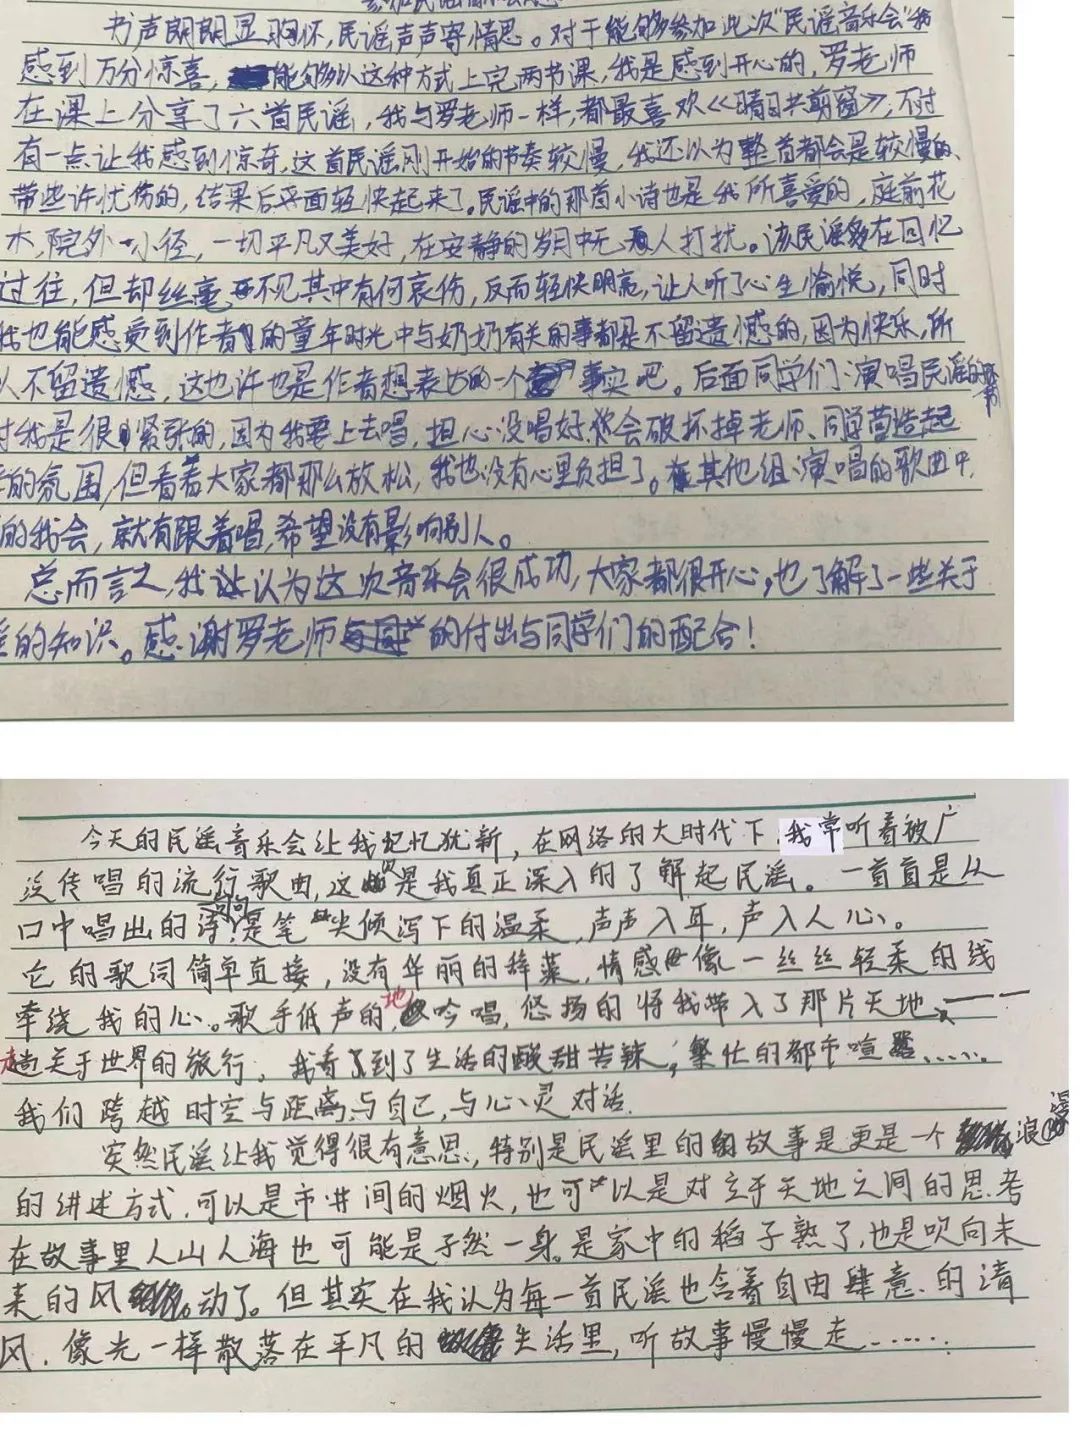 书声朗朗显胸怀,民谣声声寄情思。对于能够参加此次“民谣音乐会”我
感到万分惊喜,能够以这种方式上完两节课,我是感到开心的,罗老师
在课上分享了六首民谣,我与罗老师一样,都最喜欢《晴日共剪窗》,不过
有一点让我感到惊奇,这首民谣刚开始的节奏较慢,我还以为整首都会是较慢的、
带些许忧伤的,结果后面轻快起来了。民谣中的那首小诗也是我所喜爱的,庭前花
木,院外小径,一切平凡又美好,在安静的岁月中无人打扰。该民谣多在回忆
过往,但却丝毫不见其中有何哀伤,反而轻快明亮,让人听了心生愉悦,同时
我也能感受到作者的童年时光中与奶奶有关的事都是不留遗憾的,因为快乐,所
以不留遗憾,这也许也是作者想表达的一个事实吧。后面同学们演唱民谣的
时我是很紧张的,因为我要上去唱,担心没唱好会破坏掉老师、同学营造起
的氛围,但看着大家都那么放松,我也没有心里负担了。在其他组演唱的歌曲中,
的我会,就有跟着唱,希望没有影响别人。
总而言之,我认为这次音乐会很成功,大家都很开心,也了解了一些关于
谣的知识。感谢罗老师的付出与同学们的配合!
今天的民谣音乐会让我记忆犹新,在网络的大时代下,我常听着被广
泛传唱的流行歌曲,这次是我真正深入的了解起民谣。一首首是从
口中唱出的诗,句句是笔尖倾泻下的温柔,声声入耳,声入人心。
它的歌词简单直接,没有华丽的辞藻,情感像一丝丝轻柔的线
牵绕我的心。歌手低声地吟唱,悠扬的将我带入了那片天地、——
趟关于世界的旅行,我看到了生活的酸甜苦辣,繁忙的都市喧嚣……
我们跨越时空与距离,与自己,与心灵对话.
突然民谣让我觉得很有意思,特别是民谣里的故事是更是一个浪漫
的讲述方式,可以是市井间的烟火,也可以是对立于天地之间的思考
在故事里人山人海也可能是孑然一身。是家中的稻子熟了,也是吹向未
来的风动了。但其实在我认为每一首民谣也含着自由肆意、的清
风.像光一样散落在平凡的生活里,听故事慢慢走……